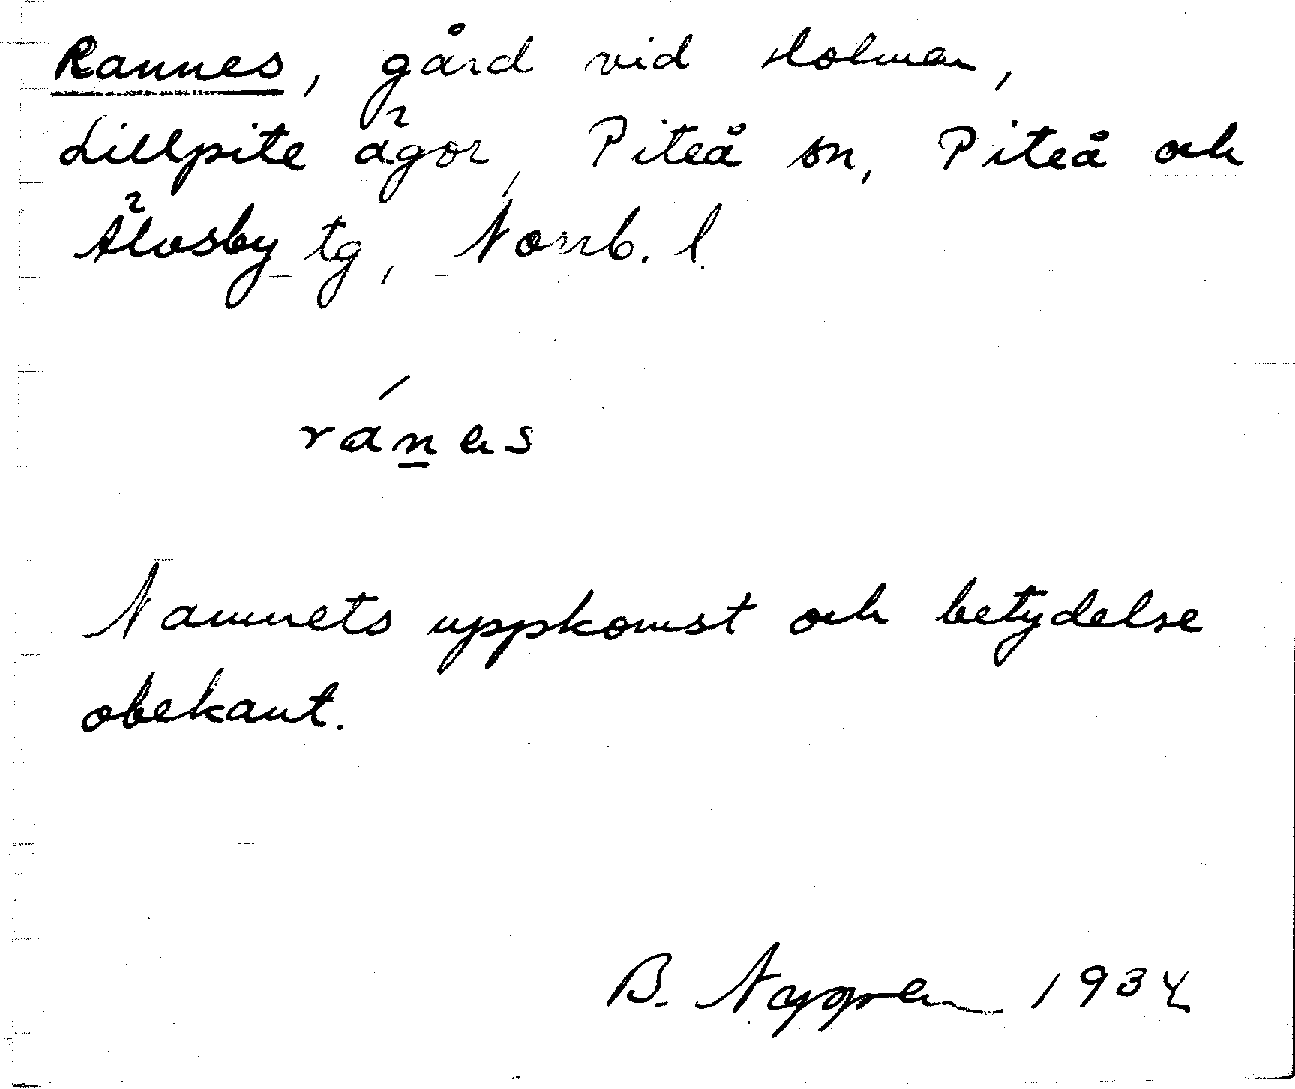 Rannes, gård vid Holmen,
Lillpite ägor, Piteå sn, Piteå och
Älvsby tg, Norrb. l.
ránes
Namnets uppkomst och betydelse
obekant.
B. Nygren 1934